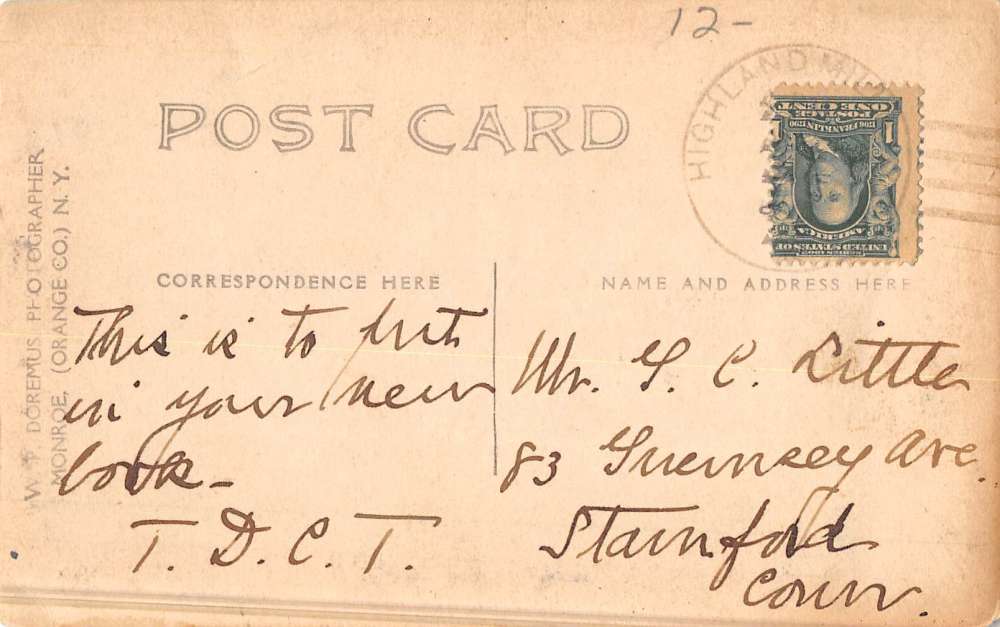 12-
POST CARD
HIGHLAND MILLS
SERIES 1902
UNITED STATES OF
AMERICA
1706 FRANKLIN 1790
POSTAGE
1 ONE CENT 1
W. T. DOREMUS PHOTOGRAPHER
MONROE, (ORANGE CO.) N. Y.
CORRESPONDENCE HERE
This is to put
in your new
book-
T. D. C. T.
NAME AND ADDRESS HERE
Mr. G. C. Little
83 Guernsey Ave.
Stamford
Conn.